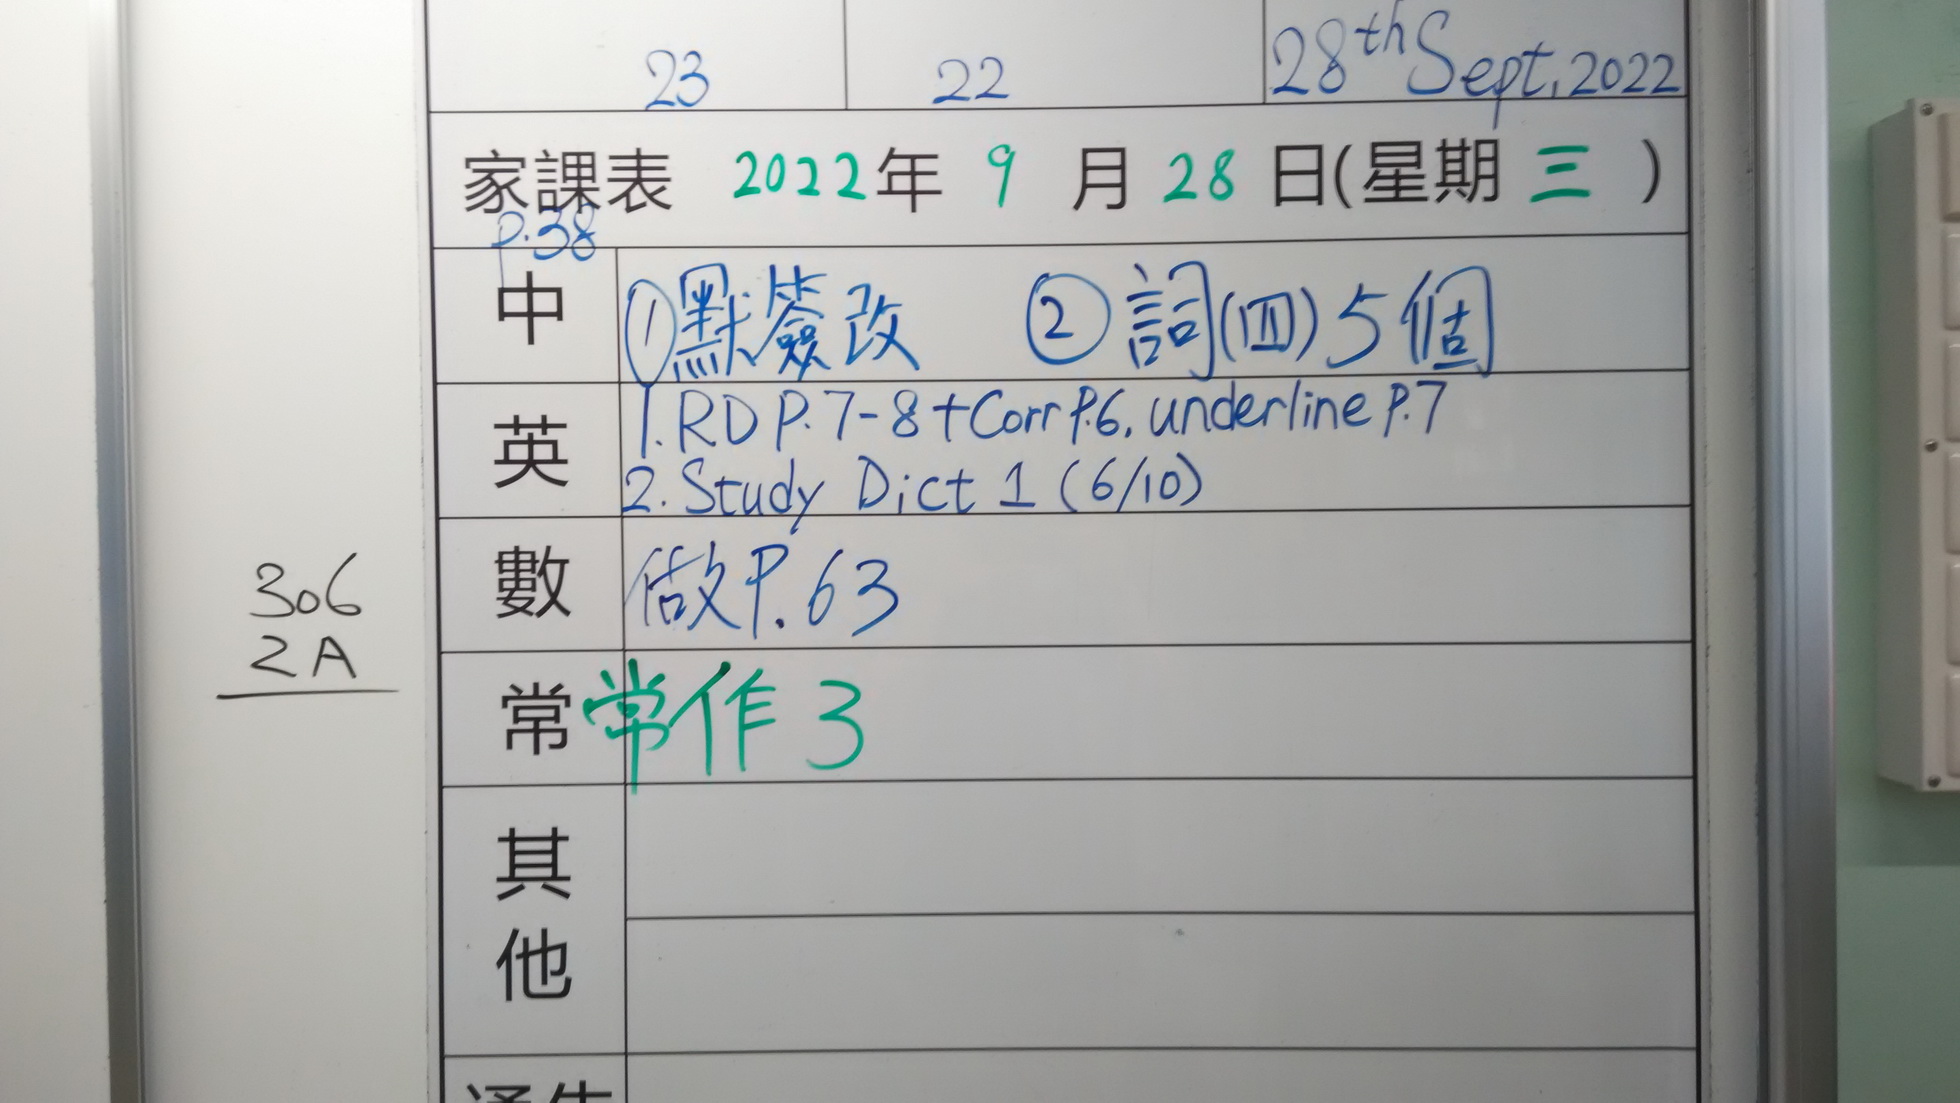 23 22 28th Sept, 2022
家課表 2022年 9 月 28 日(星期 三 )
P.38
中 ①默簽改 ②詞(四)5個
英 1. RD P.7-8 + Corr P.6, underline P.7
2. Study Dict 1 (6/10)
數 做P.63
306
2A
常 常作3
其他
通告